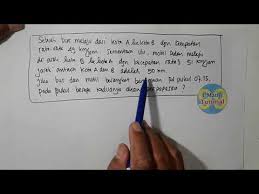 Sebuah bus melaju dari kota A ke kota B dgn kecepatan
rata-rata km/jam. Sementara itu, mobil Dalam melaju
di arah kota B ke kota A dgn kecepatan rata2 5 km/jam
jarak antara kota A dan B adalah 50 km.
Jika bus dan mobil berangkat bersamaan pd pukul 07.15,
Pada pukul berapa keduanya akan berpapasan ?
Tutorial